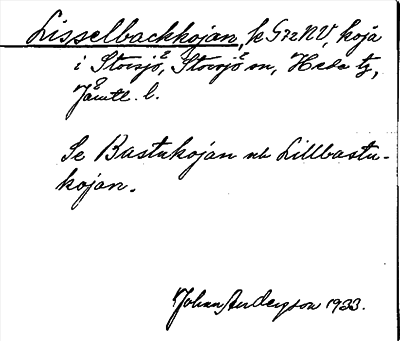 Lisselbackkojan, k G72NV, koja
i Storsjö, Storsjö sn, Heda tg,
Jämtl. l.
Se Bastukojan ub Lillbastu-
kojan.
Johan Anderson 1933.